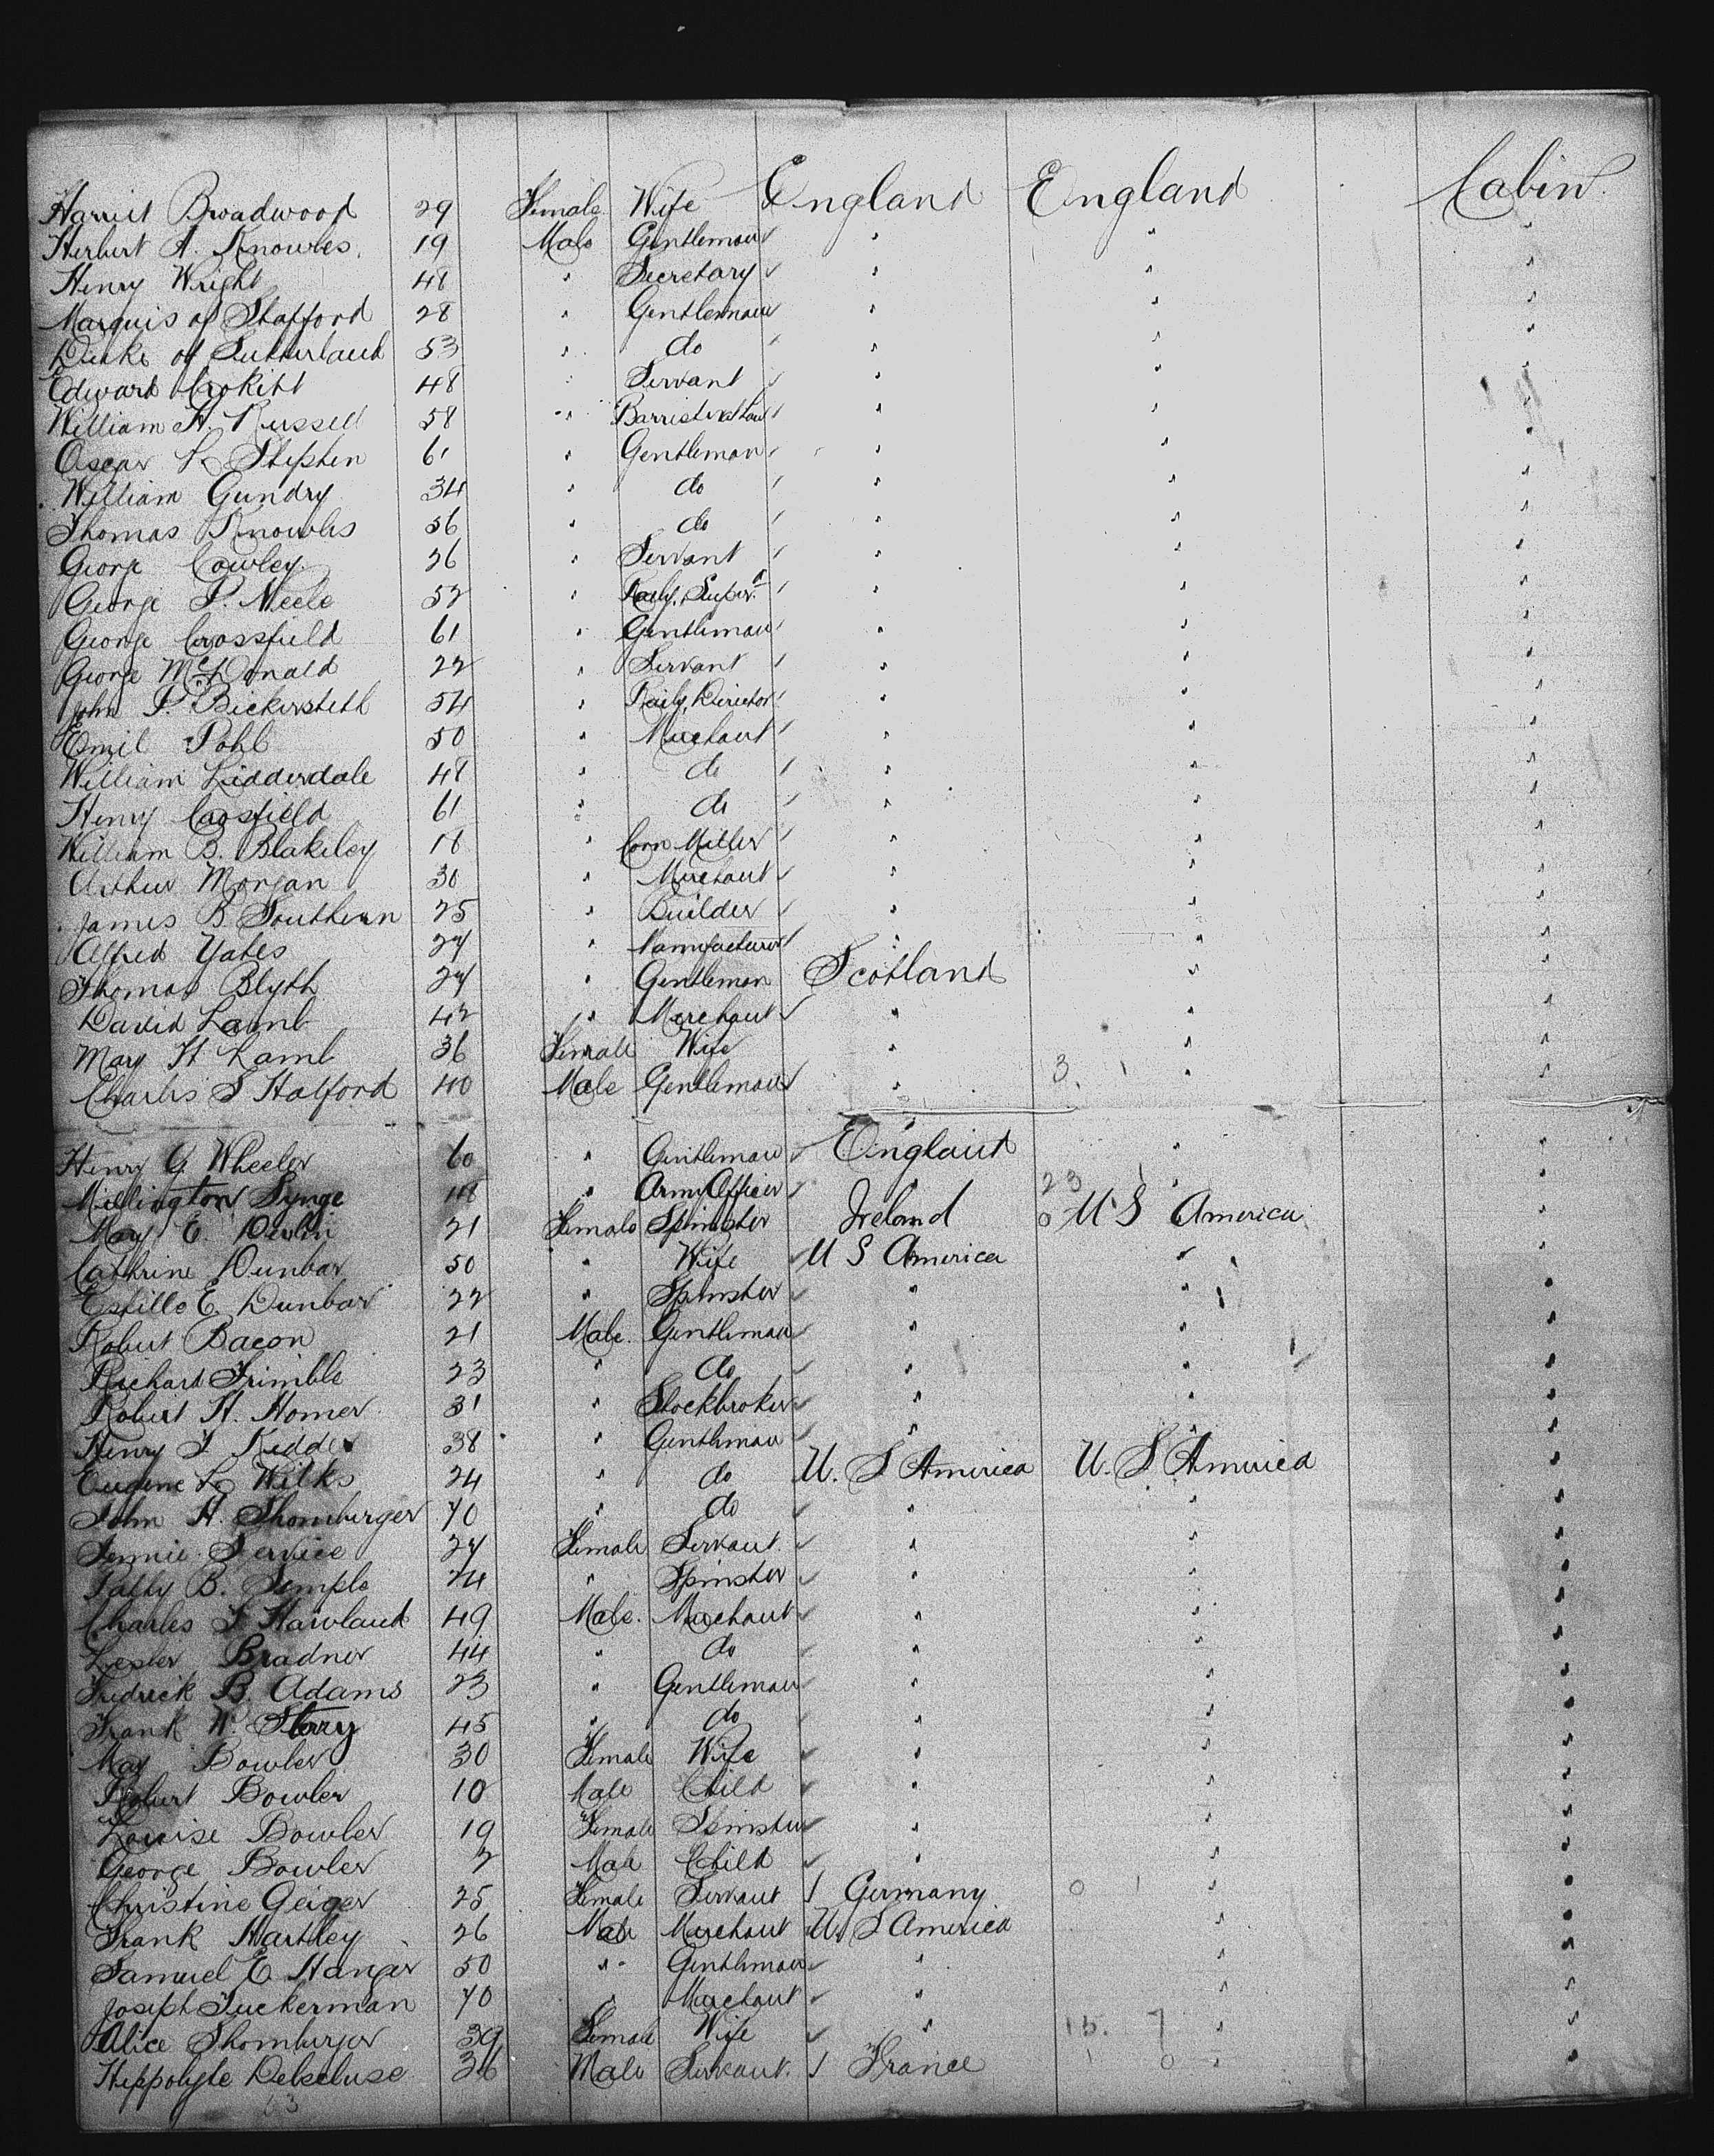 Harriet Broadwood 29 Female Wife England England Cabin
Herbert A. Knowles. 19 Male Gentleman " " "
Henry Wright 48 " Secretary " " "
Marquis of Stafford 28 " Gentleman " " "
Duke of Sutherland 53 " do " " "
Edward Crokitt 48 " Servant " " "
William H. Russell 58 " " " "
Oscar L. Stephen 61 " Gentleman " " "
William Gundry 34 " do " " "
Thomas Knowles 56 " do " " "
George Cowley 26 " Servant " " "
George P. Neele 52 " Raily. Super. " " "
George Crossfield 61 " Gentleman " " "
George McDonald 22 " Servant " " "
John P. Bickersteth 54 " Raily. Director " " "
Emil Pohl 50 " Merchant " " "
William Lidderdale 48 " do " " "
Henry Crosfield 61 " do " " "
William B. Blakeley 18 " Corn Miller " " "
Arthur Morgan 30 " Merchant " " "
James B. Southern 25 " Builder " " "
Alfred Yates 27 " Manufacturer " " "
Thomas Blyth 27 " Gentleman Scotland " "
David Lamb 42 " Merchant " " "
Mary H Lamb 36 Female Wife " " "
Charles S Halford 40 Male Gentleman " 3. 1 " "
Henry G. Wheeler 60 " Gentleman England " "
Millington Synge 48 " Army Officer " 23 1 " "
Mary E. Devlin 21 Female Spinster Ireland 0 U S America "
Cathrine Dunbar 50 " Wife U S America " "
Estille E. Dunbar 22 " Spinster " " "
Robert Bacon 21 Male. Gentleman " " "
Richard Trimble 23 " do " " "
Robert H. Homer 31 " Stockbroker " " "
Henry T Kidder 38 " Gentleman " " "
Eugene L. Wilks 24 " do U. S America U. S America "
John H. Shomburger 70 " do " " "
Jennie Service 27 Female Servant " " "
Patty B. Semple 24 " Spinster " " "
Charles T Howland 49 Male. Merchant " " "
Lester Bradner 44 " do " " "
Fredrick B. Adams 23 " Gentleman " " "
Frank W. Story 45 " do " " "
May Bowler 30 Female Wife " " "
Robert Bowler 10 Male Child " " "
Louise Bowler 19 Female Spinster " " "
George Bowler 7 Male Child " " "
Christine Geiger 25 Female Servant Germany 0 1 " "
Frank Hartley 26 Male Merchant U. S America " "
Samuel E. Hanger 50 " Gentleman " " "
Joseph Tuckerman 70 " Merchant " " "
Alice Shomburger 39 Female Wife " 15. 7 " "
Hippolyte Delecluse 36 Male Servant. France 1 0 " "
63